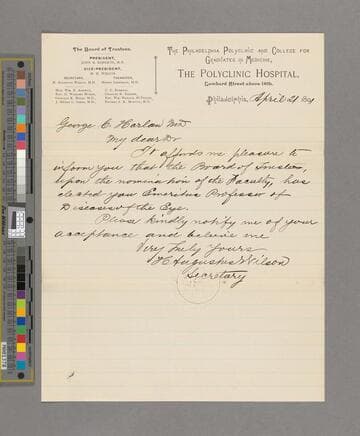 The Board of Trustees.
PRESIDENT,
VICE-PRESIDENT,
SECRETARY,
TREASURER,
The Philadelphia Polyclinic and College for
Graduates in Medicine,
The Polyclinic Hospital,
Lombard Street above 18th.
Philadelphia, April 21
George C Harlan MD
My dear Dr
It affords me pleasure to
inform you that the Board of Trustees,
upon the nomination of the Faculty, has
elected you Emeritus Professor of
Diseases of the Eye.
Please kindly notify me of your
acceptance and believe me
Very truly yours
H Augustus Wilson
Secretary